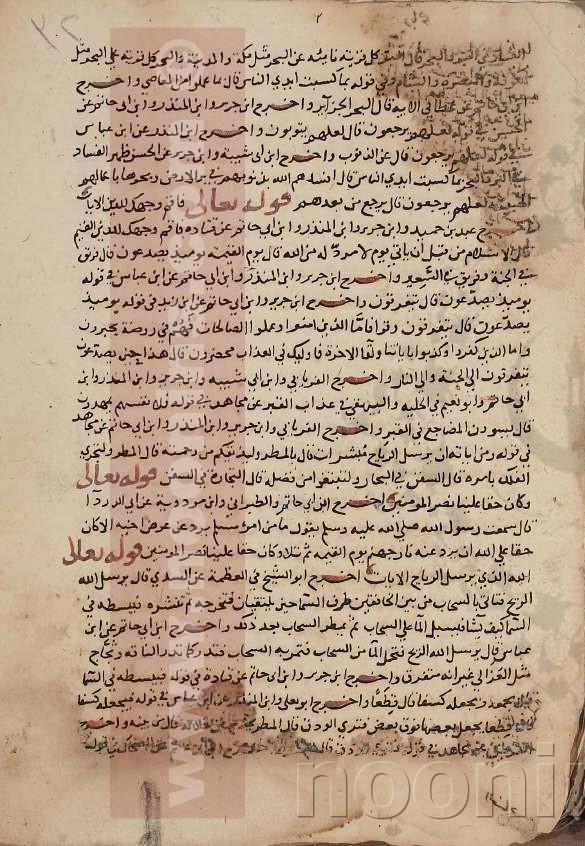 ٢
الفساد في البر والبحر قال البر كل قرية نائية عن البحر مثل مكة والمدينة والبحر كل قرية على البحر مثل
والشام وفي قوله بما كسبت ايدي الناس قال بما عملوا من المعاصي واخرج
ابن ابي حاتم عن عطا في الاية قال البحر الجزاير واخرج ابن جرير وابن المنذر وابن ابي حاتم عن
الحسن في قوله لعلهم يرجعون قال لعلهم يتوبون واخرج ابن المنذر عن ابن عباس
لعلهم يرجعون قال عن الذنوب واخرج ابن ابي شيبة وابن جرير عن الحسن ظهر الفساد
بما كسبت ايدي الناس قال افسدهم الله بذنوبهم في بر الارض وبحرها باعمالهم
لعلهم يرجعون قال يرجع من بعدهم قوله تعالى فاقم وجهك للدين الايات
اخرج عبد بن حميد وابن جرير وابن المنذر وابن ابي حاتم عن قتادة فاقم وجهك للدين القيم
قال الاسلام من قبل ان ياتي يوم لا مرد له من الله قال يوم القيمة يوميذ يصدعون قال فريق
في الجنة وفريق في السعير واخرج ابن جرير وابن المنذر وابن ابي حاتم عن ابن عباس في قوله
يوميذ يصدعون قال يتفرقون واخرج ابن جرير وابن ابي حاتم عن ابن زيد في قوله يوميذ
يصدعون قال يتفرقون وقرا فاما الذين امنوا وعملوا الصالحات فهم في روضة يحبرون
واما الذين كفروا وكذبوا باياتنا ولقا الاخرة فاوليك في العذاب محضرون قال هذا حين يصدعون
يتفرقون الى الجنة والى النار واخرج الفريابي وابن ابي شيبة وابن جرير وابن المنذر وابن
ابي حاتم وابو نعيم في الحلية والبيهقي في عذاب القبر عن مجاهد في قوله فلانفسهم يمهدون
قال يسوون المضاجع في القبر واخرج الفريابي وابن جرير وابن المنذر وابن ابي حاتم عن مجاهد
في قوله ومن اياته ان يرسل الرياح مبشرات قال بالمطر وليذيقكم من رحمته قال المطر ولتجري
الفلك بامره قال السفن في البحار ولتبتغوا من فضله قال التجارة في السفن قوله تعالى
وكان حقا علينا نصر المومنين اخرج ابن ابي حاتم والطبراني وابن مردوية عن ابي الدردا
قال سمعت رسول الله صلى الله عليه وسلم يقول ما من امرئ مسلم يرد عن عرض اخيه الا كان
حقا على الله ان يرد عنه نار جهنم يوم القيمة ثم تلا وكان حقا علينا نصر المومنين قوله تعالى
الله الذي يرسل الرياح الايات اخرج ابو الشيخ في العظمة عن السدي قال يرسل الله
الريح فتاتي بالسحاب من بين الخافقين طرف السما حين يلتقيان فتخرجه ثم تنشره فيبسطه في
السما كيف يشا فيسيل الما على السحاب ثم يمطر السحاب بعد ذلك واخرج ابن ابي حاتم عن ابن
عباس قال يرسل الله الريح فتحمل الما من السحاب فتمر به السحاب فتدر كما تدر الناقة وثجاج
مثل العزالي غير انه متفرق واخرج ابن جرير وابن ابي حاتم عن قتادة في قوله فيبسطه في السما
قال يجمعه ويجعله كسفا قال قطعا واخرج ابو يعلى وابن المنذر عن ابن عباس في قوله فيجعله كسفا
قطعا يجعل بعضها فوق بعض فترى الودق قال المطر يخرج من خلاله قال من بينه واخرج
الفريابي عن مجاهد في قوله فترى الودق قال
nooni